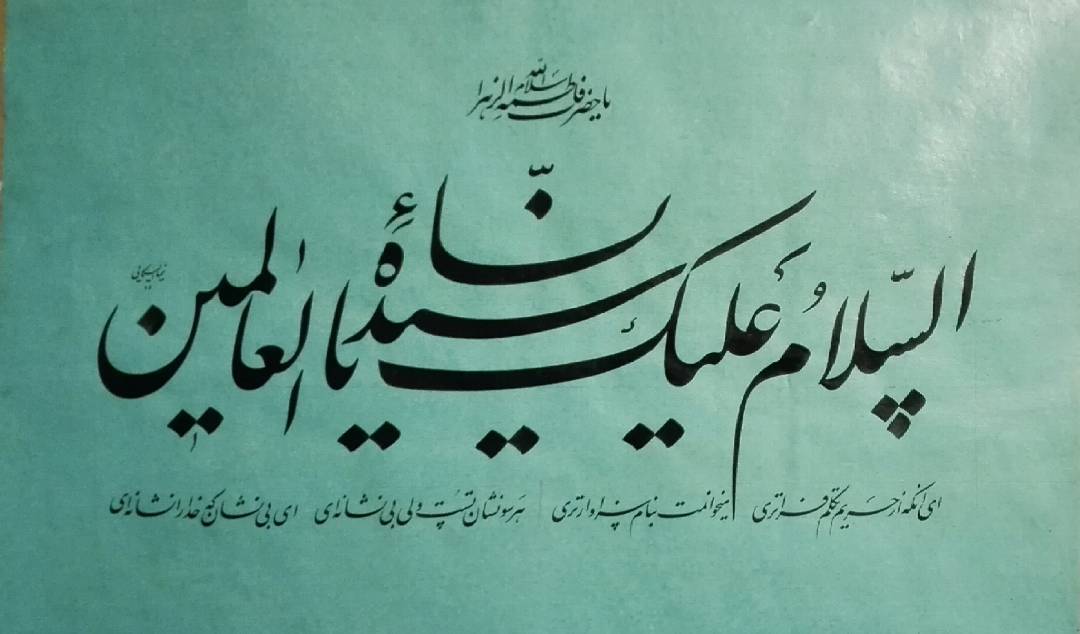 یا حضرت فاطمة الزهرا سلام الله
السّلامُ عَلیکِ یا سیّدةَ نسّاءِ العالمین
ای آنکه از حریم تکلم فراتری میخوانمت بنام سزاوارتری هر سو نشان تست ولی بی نشانه‌ای ای بی نشان که خدا را نشانه‌ای